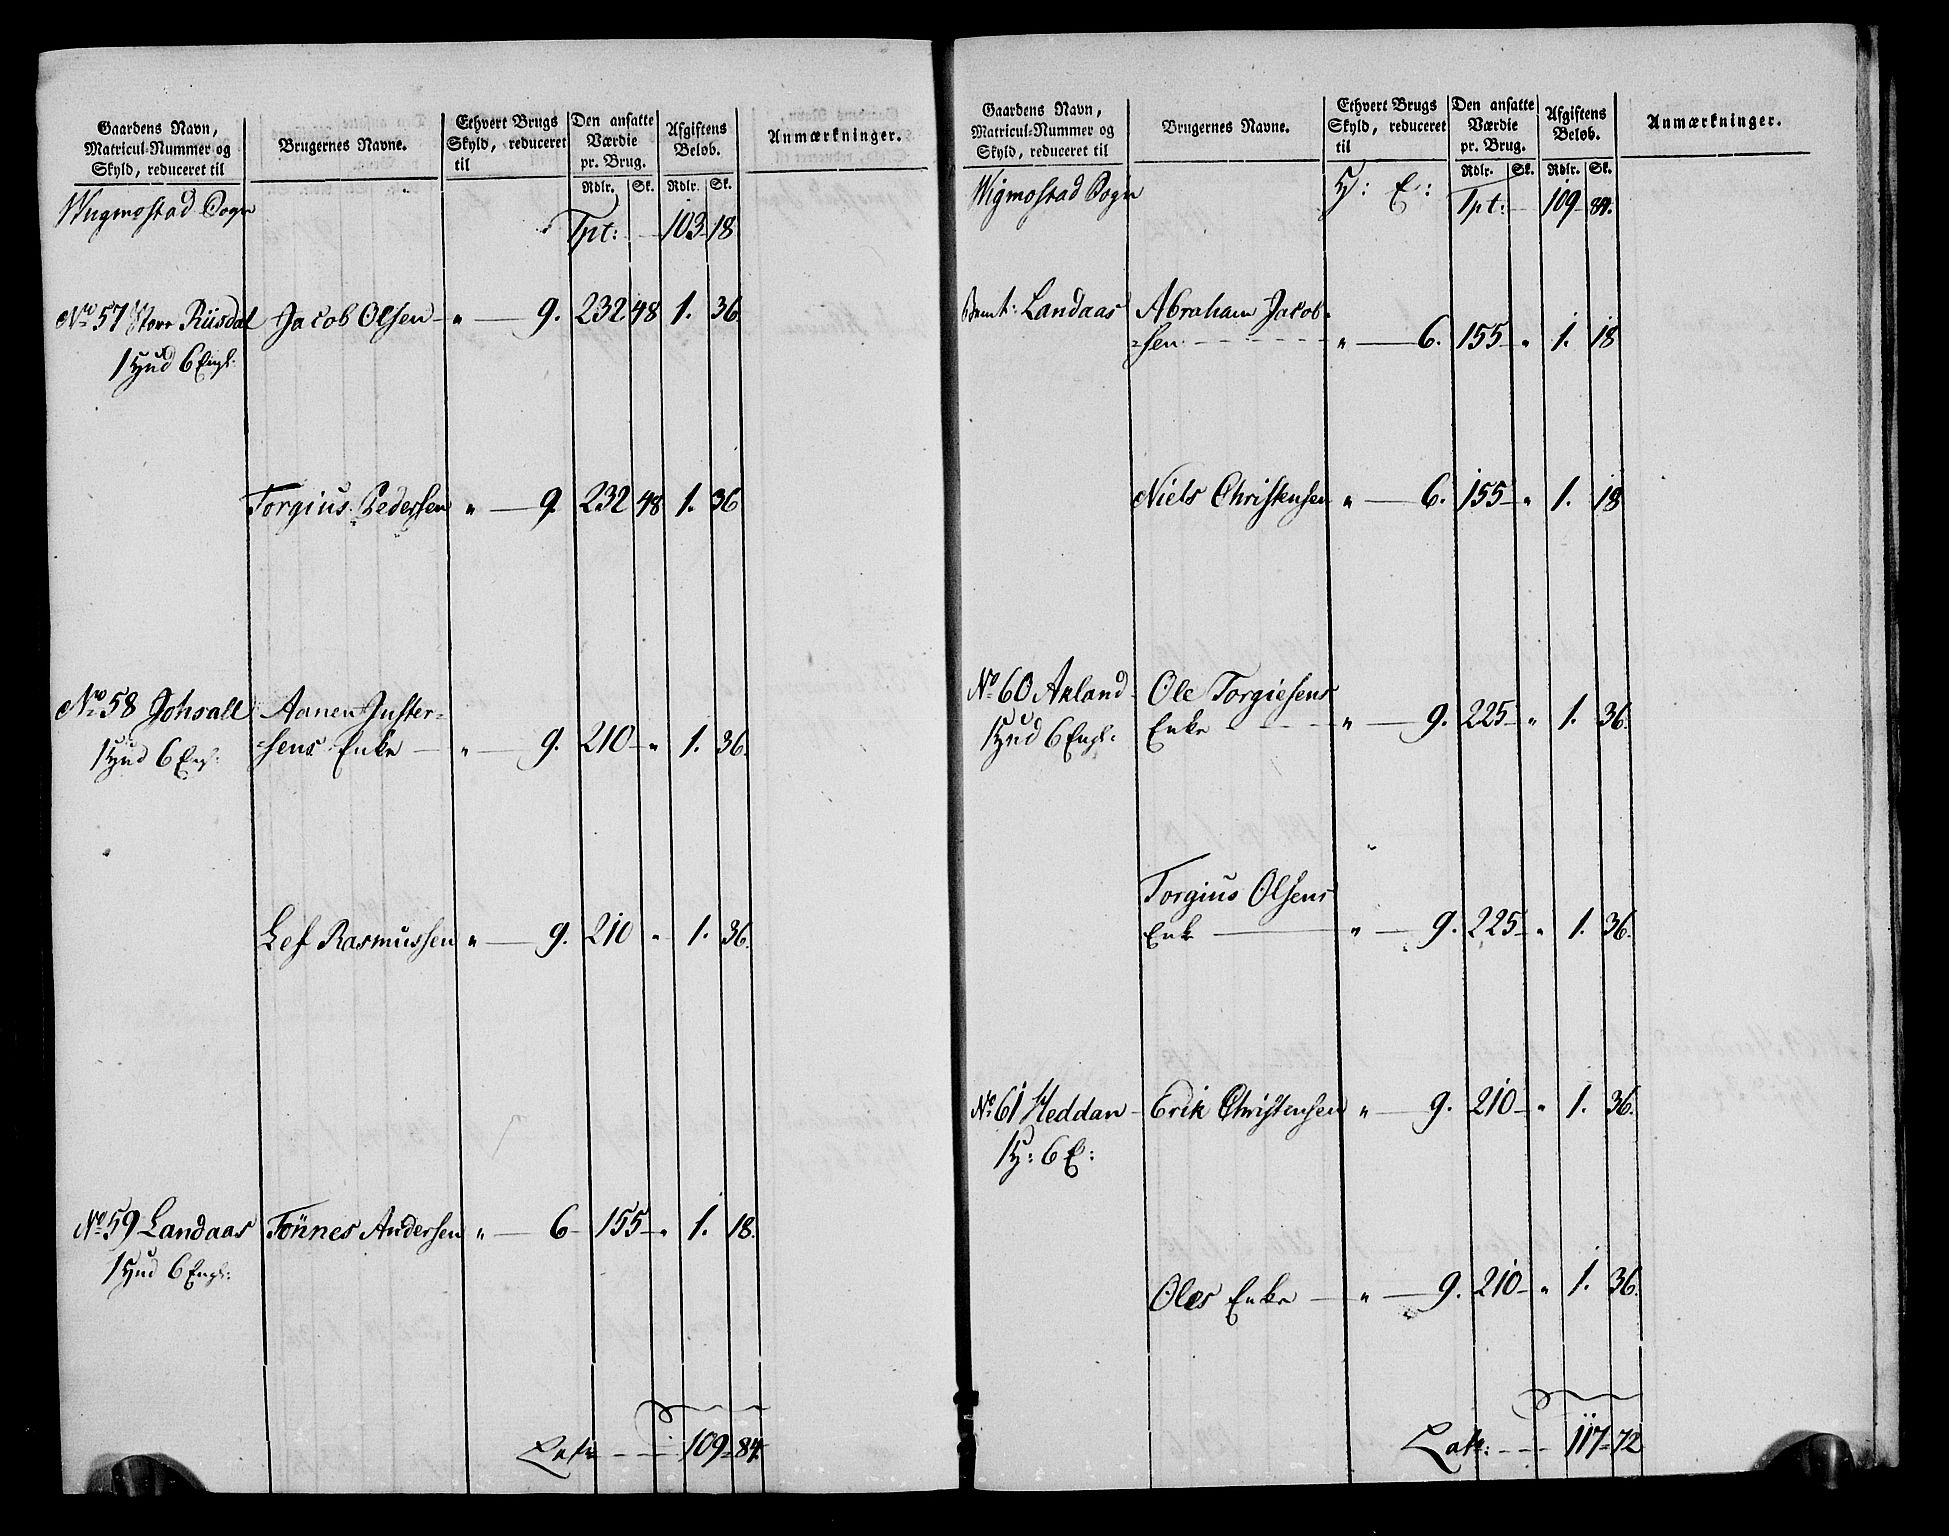 Gaardens Navn,
Matricul-Nummer og
Skyld, reduceret til
Brugernes Navne.
Ethvert Brugs
Skyld, reduceret
til
Den ansatte
Værdie
pr. Brug.
Rdlr. Sk.
Afgiftens
Beløb.
Rdlr. Sk.
Anmærkninger.
Sogn
Tpt: 103 18
No 57 Riisdal Jacob Olsen " 9. 232 48 1. 36.
1 Hud 6 Engl:
Torgius Pedersen " 9. 232 48 1. 36
No 58 Aanen
1 Hud 6 Eng: sens Enke " 9. 210 " 1. 36.
Lef Rasmussen " 9. 210 " 1. 36.
No 59 Landaas Tönnes Andersen " 6 155 " 1. 18.
1 Hud 6 Engl:
Late 109 84.
Gaardens Navn,
Matricul-Nummer og
Skyld, reduceret til
Brugernes Navne.
Ethvert Brugs
Skyld, reduceret
til
Den ansatte
Værdie
pr. Brug.
Rdlr. Sk.
Afgiftens
Beløb.
Rdlr. Sk.
Anmærkninger.
Wigmostad Sogn H: E: Tpt: 109 84.
Landaas Abraham Jacob-
sen " 6. 155 " 1. 18
Niels Christensen " 6. 155 " 1. 18
No 60 Ole Torgiesens
1 Hud 6 Engl: Enke " 9. 225 " 1. 36.
Torgius Olsens
Enke " 9. 225 " 1. 36.
No 61 Heddan Erik Christensen " 9. 210 " 1. 36.
1 H: 6 E:
Oles Enke " 9. 210 " 1. 36.
Late: 117 72